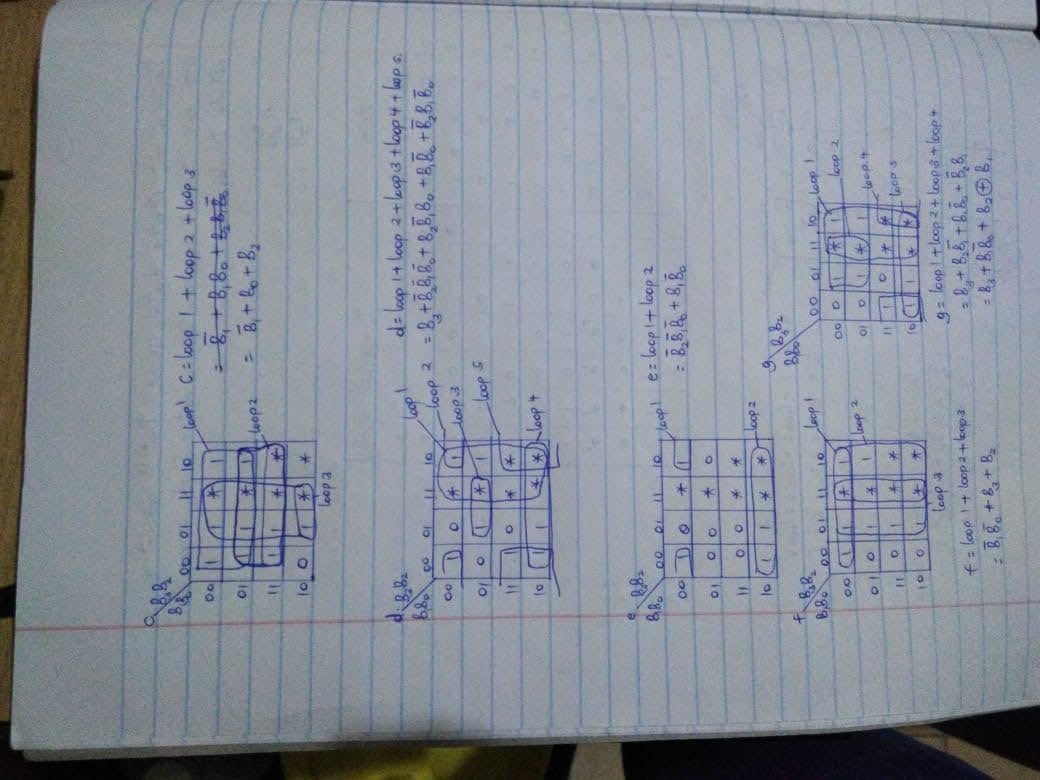 C B3B2
B1B0 00 01 11 10
00 1 1 * 1
01 1 1 * 1
11 1 1 * *
10 0 1 * *
loop 1
loop 2
loop 3
C = loop 1 + loop 2 + loop 3
= B̅1 + B1B0 + B2B̅1B̅0
= B̅1 + B0 + B2
d B3B2
B1B0 00 01 11 10
00 1 0 * 1
01 0 1 * 1
11 1 0 * *
10 1 1 * *
loop 1
loop 2
loop 3
loop 5
loop 4
d = loop 1 + loop 2 + loop 3 + loop 4 + loop 5.
= B3 + B̅2B̅1B̅0 + B2B̅1B0 + B1B̅0 + B̅2B1B0
e B3B2
B1B0 00 01 11 10
00 1 0 * 1
01 0 0 * 0
11 0 0 * *
10 1 1 * *
loop 1
loop 2
e = loop 1 + loop 2
= B̅2B̅1B̅0 + B1B̅0
f B3B2
B1B0 00 01 11 10
00 1 1 * 1
01 0 1 * 1
11 0 1 * *
10 0 1 * *
loop 1
loop 2
loop 3
f = loop 1 + loop 2 + loop 3
= B̅1B̅0 + B3 + B2
g B3B2
B1B0 00 01 11 10
00 0 1 * 1
01 0 1 * 1
11 1 0 * *
10 1 1 * *
loop 1
loop 2
loop 4
loop 3
g = loop 1 + loop 2 + loop 3 + loop 4
= B3 + B2B̅1 + B1B̅0 + B̅2B1
= B3 + B1B̅0 + B2 ⊕ B1